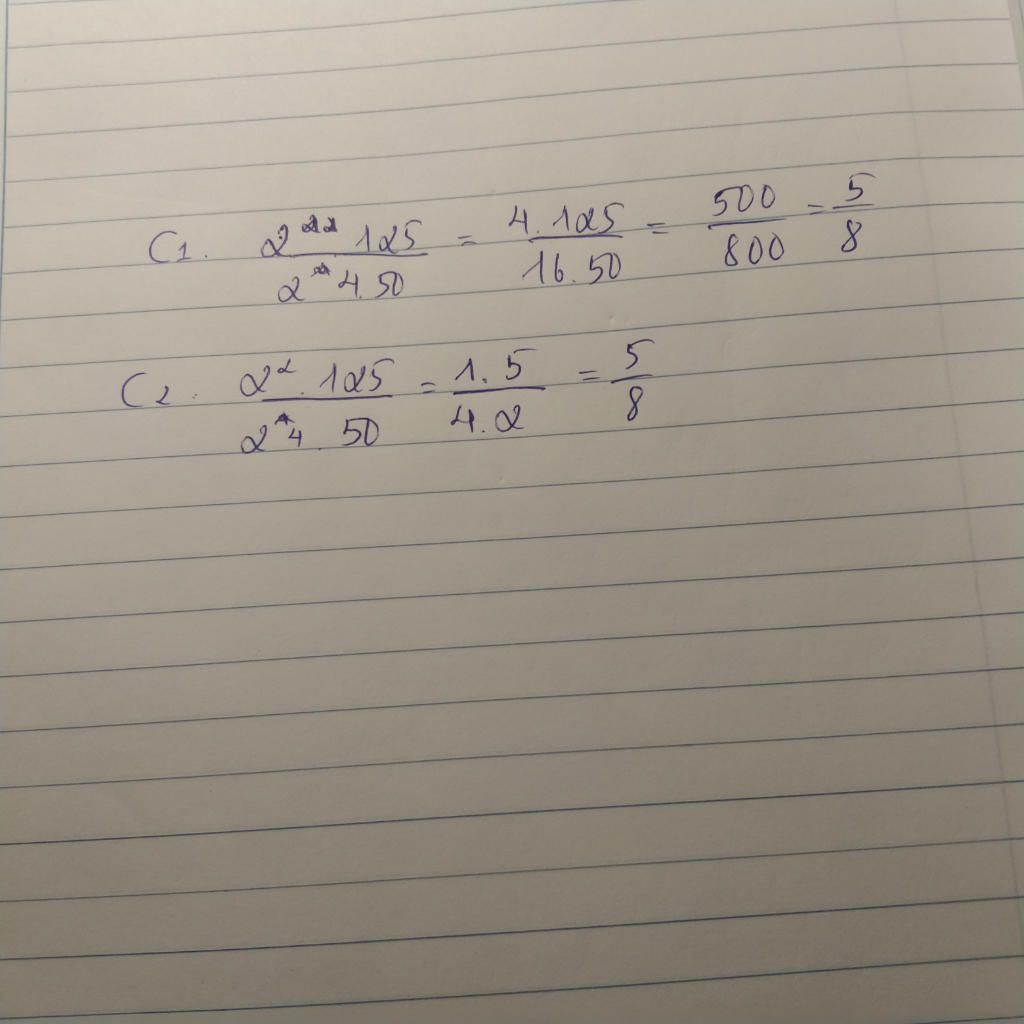 C1. 2² 125 / 2⁴ . 50 = 4.125 / 16.50 = 500 / 800 = 5 / 8
C2. 2² . 125 / 2⁴ . 50 = 1.5 / 4.2 = 5 / 8